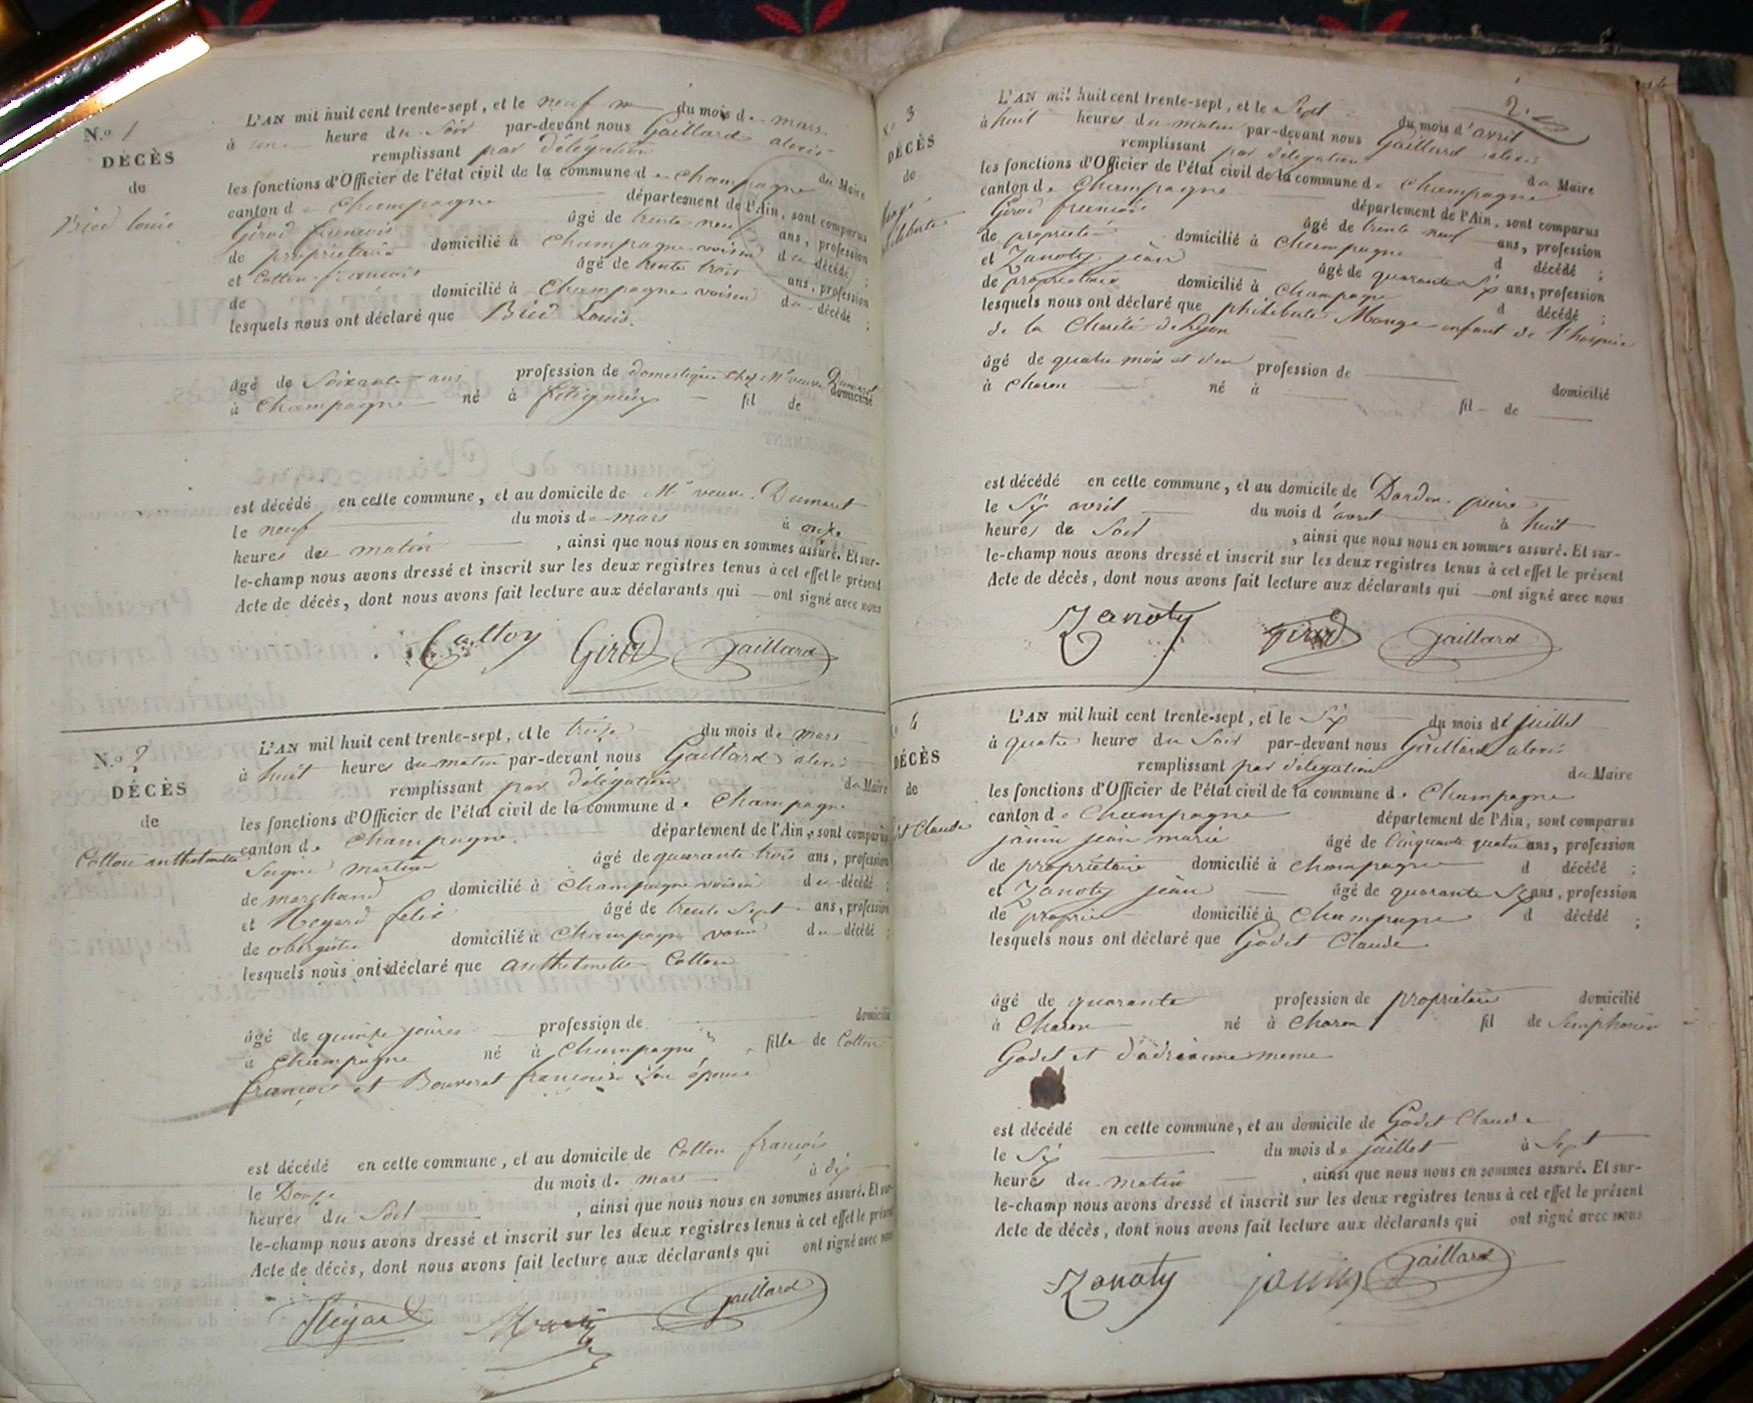 N.o 1
DÉCÈS
de
Bied Louis
L'AN mil huit cent trente-sept, et le neuf du mois de mars
à une heure du Soir par-devant nous Gaillard alexis
remplissant par délégation du Maire
les fonctions d'Officier de l'état civil de la commune de Champagne
canton de Champagne département de l'Ain, sont comparus
Girod francois âgé de trente neuf ans, profession
de propriétaire domicilié à Champagne voisin du décédé ;
et Cotton francois âgé de trente trois ans, profession
de domicilié à Champagne voisin du décédé ;
lesquels nous ont déclaré que Bied Louis.
âgé de Soixante ans profession de domestique chez Me veuve Dumarest domicilié
à Champagne né à fil de
est décédé en cette commune, et au domicile de Me veuve Dumarest
le neuf du mois de mars à onze
heures du matin, ainsi que nous nous en sommes assuré. Et sur-
le-champ nous avons dressé et inscrit sur les deux registres tenus à cet effet le présent
Acte de décès, dont nous avons fait lecture aux déclarants qui ont signé avec nous
Cotton Girod Gaillard
N.o 2
DÉCÈS
de
Cotton anthelmette
L'AN mil huit cent trente-sept, et le treize du mois de mars
à huit heures du matin par-devant nous Gaillard alexis
remplissant par délégation du Maire
les fonctions d'Officier de l'état civil de la commune de Champagne
canton de Champagne département de l'Ain, sont comparus
martin âgé de quarante trois ans, profession
de marchand domicilié à Champagne voisin du décédé ;
et felix âgé de trente Sept ans, profession
de domicilié à Champagne voisin du décédé ;
lesquels nous ont déclaré que anthelmette Cotton
âgé de quinze joures profession de domicilié
à Champagne né à Champagne fille de Cotton
francois et Bouverat francoise Son épouse
est décédé en cette commune, et au domicile de Cotton francois
le Douze du mois de mars à dix
heures du Soir, ainsi que nous nous en sommes assuré. Et sur-
le-champ nous avons dressé et inscrit sur les deux registres tenus à cet effet le présent
Acte de décès, dont nous avons fait lecture aux déclarants qui ont signé avec nous
Gaillard
2.
3
DÉCÈS
de
L'AN mil huit cent trente-sept, et le Sept du mois d'avril
à huit heures du matin par-devant nous Gaillard alexis
remplissant par délégation du Maire
les fonctions d'Officier de l'état civil de la commune de Champagne
canton de Champagne département de l'Ain, sont comparus
Girod francois âgé de trente neuf ans, profession
de propriétaire domicilié à Champagne d décédé ;
et Zanoty jean âgé de quarante Six ans, profession
de propriétaire domicilié à Champagne d décédé ;
lesquels nous ont déclaré que philiberte Monge enfant de l'hospice
de la Charité de Lyon
âgé de quatre mois et demi profession de domicilié
à Charon né à fil de
est décédé en cette commune, et au domicile de Dardon pierre
le Six avril du mois d'avril à huit
heures du Soir, ainsi que nous nous en sommes assuré. Et sur-
le-champ nous avons dressé et inscrit sur les deux registres tenus à cet effet le présent
Acte de décès, dont nous avons fait lecture aux déclarants qui ont signé avec nous
Zanoty Girod Gaillard
4
DÉCÈS
de
Claude
L'AN mil huit cent trente-sept, et le Six du mois de juillet
à quatre heure du Soir par-devant nous Gaillard alexis
remplissant par délégation du Maire
les fonctions d'Officier de l'état civil de la commune de Champagne
canton de Champagne département de l'Ain, sont comparus
janin jean marie âgé de Cinquante quatre ans, profession
de propriétaire domicilié à Champagne d décédé ;
et Zanoty jean âgé de quarante Six ans, profession
de domicilié à Champagne d décédé ;
lesquels nous ont déclaré que Godet Claude
âgé de quarante profession de propriétaire domicilié
à Charon né à Charon fil de Simphorien
Godet et d'adrianne
est décédé en cette commune, et au domicile de Godet Claude
le Six du mois de juillet à Sept
heures du matin, ainsi que nous nous en sommes assuré. Et sur-
le-champ nous avons dressé et inscrit sur les deux registres tenus à cet effet le présent
Acte de décès, dont nous avons fait lecture aux déclarants qui ont signé avec nous
Zanoty janin Gaillard